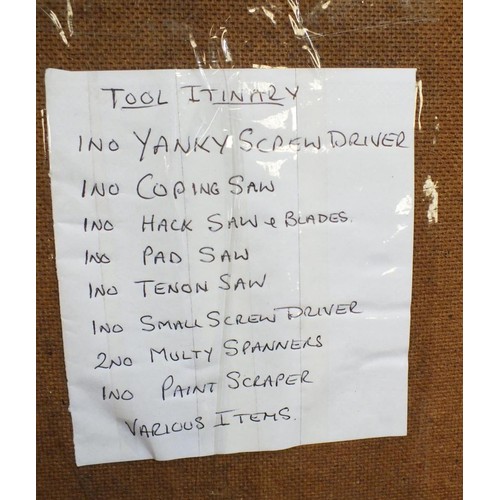 TOOL ITINARY
1NO YANKY SCREW DRIVER
1NO COPING SAW
1NO HACK SAW & BLADES.
1NO PAD SAW
1NO TENON SAW
1NO SMALL SCREW DRIVER
2NO MULTY SPANNERS
1NO PAINT SCRAPER
VARIOUS ITEMS.